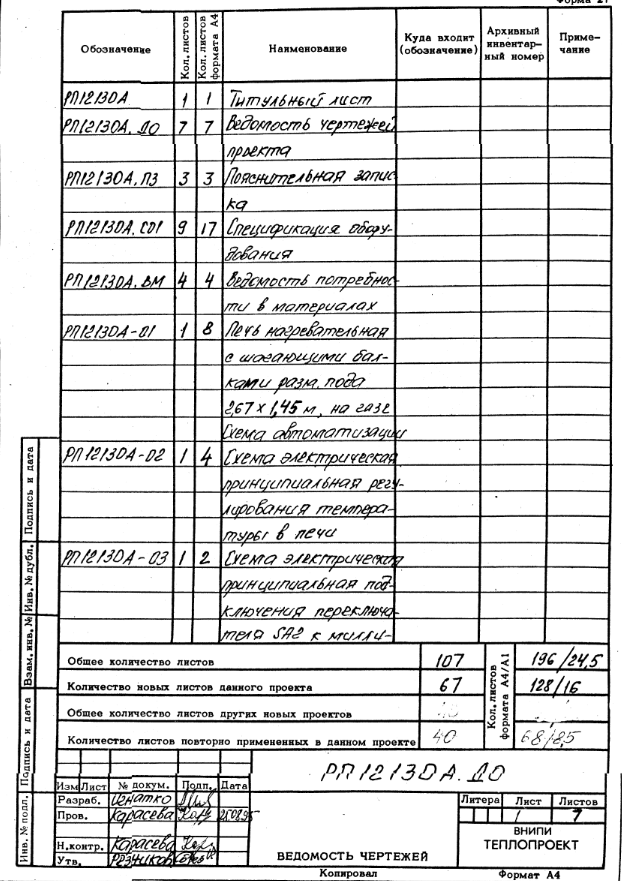 Форма 21
Обозначение Кол. листов Кол. листов формата А4 Наименование Куда входит (обозначение) Архивный инвентарный номер Примечание
РП12130А 1 1 Титульный лист
РП12130А.ДО 7 7 Ведомость чертежей
проекта
РП12130А.ПЗ 3 3 Пояснительная запис
ка
РП12130А.СО1 9 17 Спецификация обору-
дования
РП12130А.ВМ 4 4 Ведомость потребнос
ти в материалах
РП12130А-01 1 8 Печь нагревательная
с шагающими бал-
ками разм. пода
2,67 х 1,45 м, на газе
Схема автоматизации
РП12130А-02 1 4 Схема электрическая
принципиальная регу-
лирования темпера-
туры в печи
РП12130А-03 1 2 Схема электрическая
принципиальная под-
ключения переключа-
теля SA2 к милли-
Общее количество листов 107 Кол. листов формата А4/А1 196/24,5
Количество новых листов данного проекта 67 128/16
Общее количество листов других новых проектов
Количество листов повторно примененных в данном проекте 40 68/8,5
РП12130А.ДО
Изм Лист № докум. Подп. Дата
Разраб. Игнатко
Пров. Карасева 25.08.95
Н.контр. Карасева
Утв. Резчиков
Литера Лист Листов
1 7
ВЕДОМОСТЬ ЧЕРТЕЖЕЙ
ВНИПИ
ТЕПЛОПРОЕКТ
Копировал Формат А4
Инв. № подл. Подпись и дата Взам. инв. № Инв. № дубл. Подпись и дата